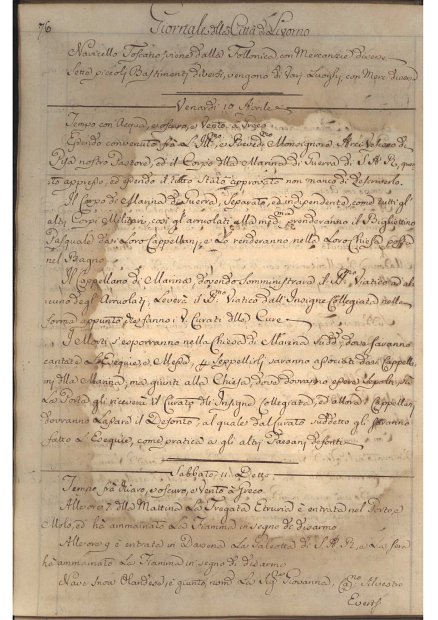 76 Giornali della Città di Livorno
Navicello Toscano viene dalla Follonica, con Mercanzie diverse
Sette piccoli Bastimenti diversi, vengono di Varj Luoghi, con Merci diverse
Venardi 10 Aprile
Tempo con Acqua, e oscuro, e Vento à Greco
Essendo convenuto frà L'Ill.mo, e Rev.mo Monsignore Arcivescovo di
Pisa nostro Pastore, ed il Corpo della Marina di Guerra di S. A. R.,
appresso, ed essendo il tutto Stato approvato non manco di descriverlo.
Il Corpo di Marina di Guerra, Separato, ed independente, come tutti gli
altri Corpi Militari, così gli arruolati alla prenderanno il Biglietto
Pasquale dai Loro Cappellani, e Lo renderanno nella Loro Chiesa posta
nel Bagno
Il Cappellano di Marina, dovendo Somministrare il S. Viatico ad al-
cuno degli Arruolati, Leverà il S. Viatico dall'Insigne Collegiata nella
forma appunto, che fanno i Curati delle Cure
I Morti s'esporranno nella Chiesa di Marina dove saranno
cantate L'Esequie, e Messa, Seppellirli saranno associati dai Cappella-
ni della Marina, ma giunti alla Chiesa, dove dovranno essere
La Porta gli riceverà il Curato dell'Insigne Collegiata, ed allora i Cappellani
dovranno Lasciare il Defonto, al quale dal Curato suddetto gli saranno
fatto L'Esequie, come pratica a gli altri Paesani defonti
Sabbato 11 Detto
Tempo frà chiaro, e oscuro, e Vento à Greco
Alle ore 7 della Mattina La Fregata Etruria è entrata nel Porto, e
Molo, ed hà ammainato La Fiamma in segno di disarmo
Alle ore 9 è entrata in Darsena La Galeotta di S. A. R., e La Sera
hà ammainato La Fiamma in segno di disarmo
Nave Snow Olandese, è giunto, nom. La Sig.ra Giovanna, Silvestro
Evertz